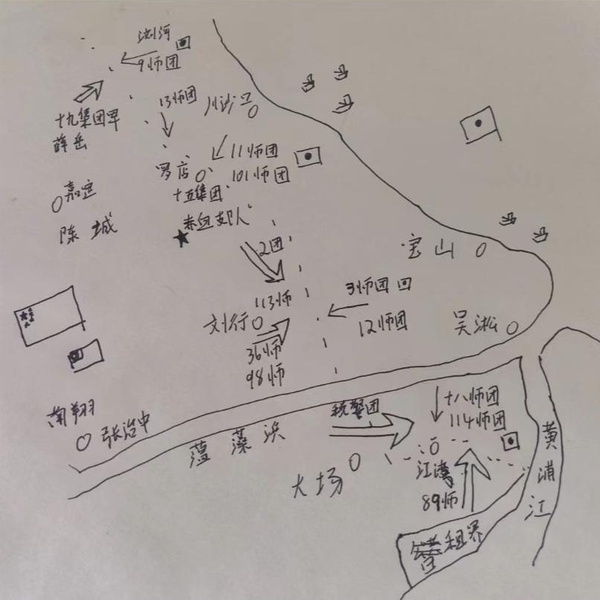 浏河
9师团
13师团
川沙口
十九集团军
薛岳
罗店
11师团
101师团
嘉定
十五集团
陈城
赤血支队
2团
宝山
113师
3师团
刘行
12师团
吴淞
36师
98师
南翔
张治中
税警团
十八师团
114师团
蕰藻浜
江湾
大场
89师
黄浦江
租界